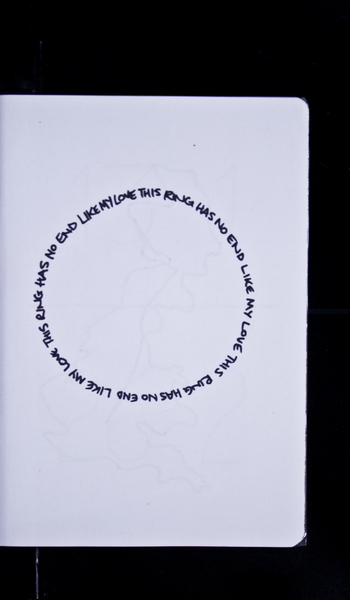 THIS RING HAS NO END LIKE MY LOVE THIS RING HAS NO END LIKE MY LOVE THIS RING HAS NO END LIKE MY LOVE